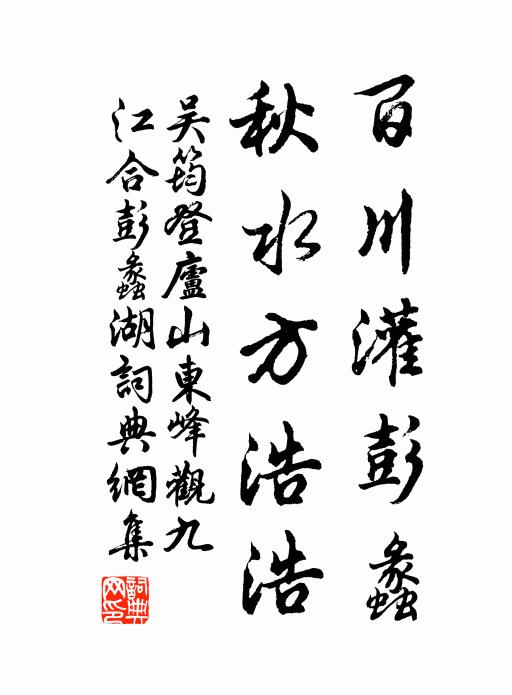 百川灌彭蠡
秋水方浩浩
吴筠登廬山東峰觀九
江合彭蠡湖詞典網集
詞典网印